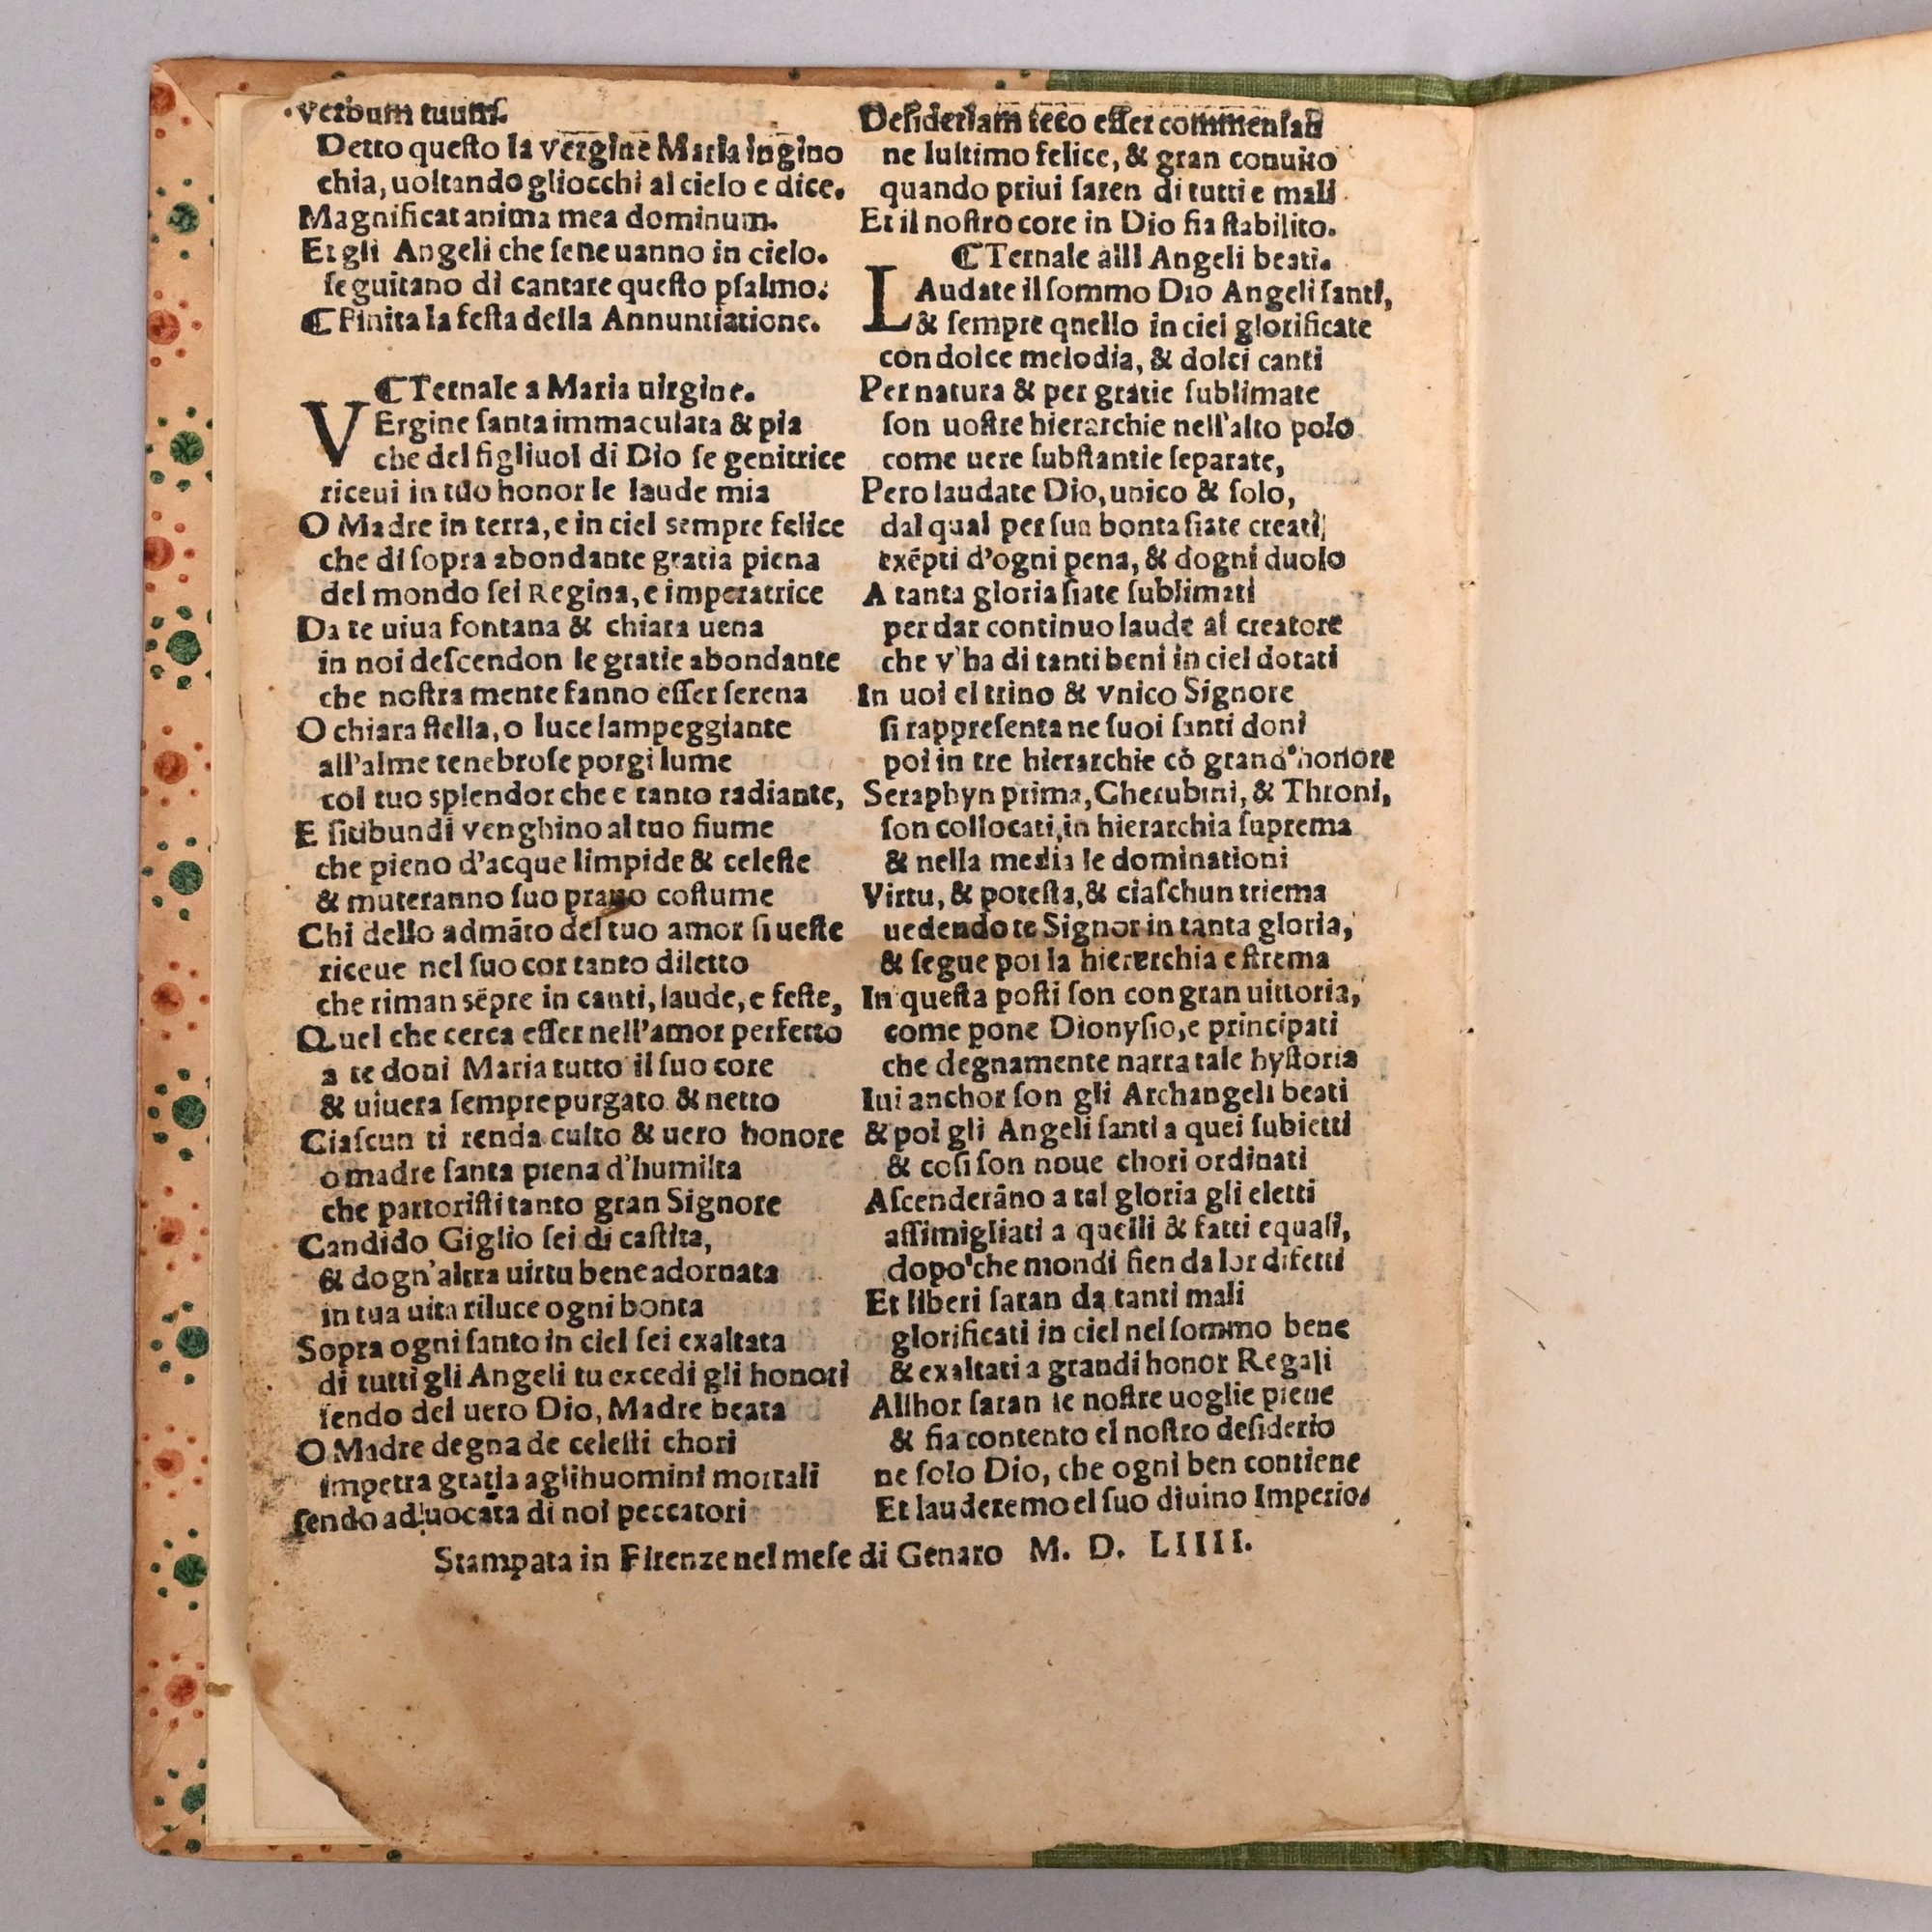 verbum tuum.
Detto questo la vergine Maria ingino
chia, uoltando gliocchi al cielo e dice.
Magnificat anima mea dominum.
Et gli Angeli che sene uanno in cielo.
seguitano di cantare questo psalmo.
¶ Finita la festa della Annuntiatione.
¶ Ternale a Maria uirgine.
VErgine santa immaculata & pia
che del figliuol di Dio se genitrice
riceui in tuo honor le laude mia
O Madre in terra, e in ciel sempre felice
che di sopra abondante gratia piena
del mondo sei Regina, e imperatrice
Da te uiua fontana & chiara uena
in noi descendon le gratie abondante
che nostra mente fanno esser serena
O chiara stella, o luce lampeggiante
all'alme tenebrose porgi lume
col tuo splendor che e tanto radiante,
E sitibundi venghino al tuo fiume
che pieno d'acque limpide & celeste
& muteranno suo prauo costume
Chi dello admāto del tuo amor si ueste
riceue nel suo cor tanto diletto
che riman sēpre in canti, laude, e feste,
Quel che cerca esser nell'amor perfetto
a te doni Maria tutto il suo core
& uiuera sempre purgato & netto
Ciascun ti renda culto & uero honore
o madre santa piena d'humilta
che partoristi tanto gran Signore
Candido Giglio sei di castita,
& dogn'altra uirtu bene adornata
in tua uita riluce ogni bonta
Sopra ogni santo in ciel sei exaltata
di tutti gli Angeli tu excedi gli honori
sendo del uero Dio, Madre beata
O Madre degna de celesti chori
impetra gratia aglihuomini mortali
sendo aduocata di noi peccatori
Desideriam teco esser commensali
ne lultimo felice, & gran conuito
quando priui saren di tutti e mali
Et il nostro core in Dio fia stabilito.
¶ Ternale alli Angeli beati.
LAudate il sommo Dio Angeli santi,
& sempre quello in ciel glorificate
con dolce melodia, & dolci canti
Per natura & per gratie sublimate
son uostre hierarchie nell'alto polo
come uere substantie separate,
Pero laudate Dio, unico & solo,
dal qual per sua bonta siate creati,
exēpti d'ogni pena, & dogni duolo
A tanta gloria siate sublimati
per dar continuo laude al creatore
che v'ha di tanti beni in ciel dotati
In uoi el trino & vnico Signore
si rappresenta ne suoi santi doni
poi in tre hierarchie cō grand'honore
Seraphyn prima, Cherubini, & Throni,
son collocati, in hierarchia suprema
& nella media le dominationi
Virtu, & potesta, & ciaschun triema
uedendo te Signor in tanta gloria,
& segue poi la hiererchia estrema
In questa posti son con gran uittoria,
come pone Dionysio, e principati
che degnamente narra tale hystoria
Iui anchor son gli Archangeli beati
& poi gli Angeli santi a quei subietti
& cosi son noue chori ordinati
Ascenderāno a tal gloria gli eletti
assimigliati a quelli & fatti equali,
dopo che mondi fien da lor difetti
Et liberi saran da tanti mali
glorificati in ciel nel sommo bene
& exaltati a grandi honor Regali
Allhor saran le nostre uoglie piene
& fia contento el nostro desiderio
ne solo Dio, che ogni ben contiene
Et lauderemo el suo diuino Imperio.
Stampata in Firenze nel mese di Genaro M. D. LIIII.